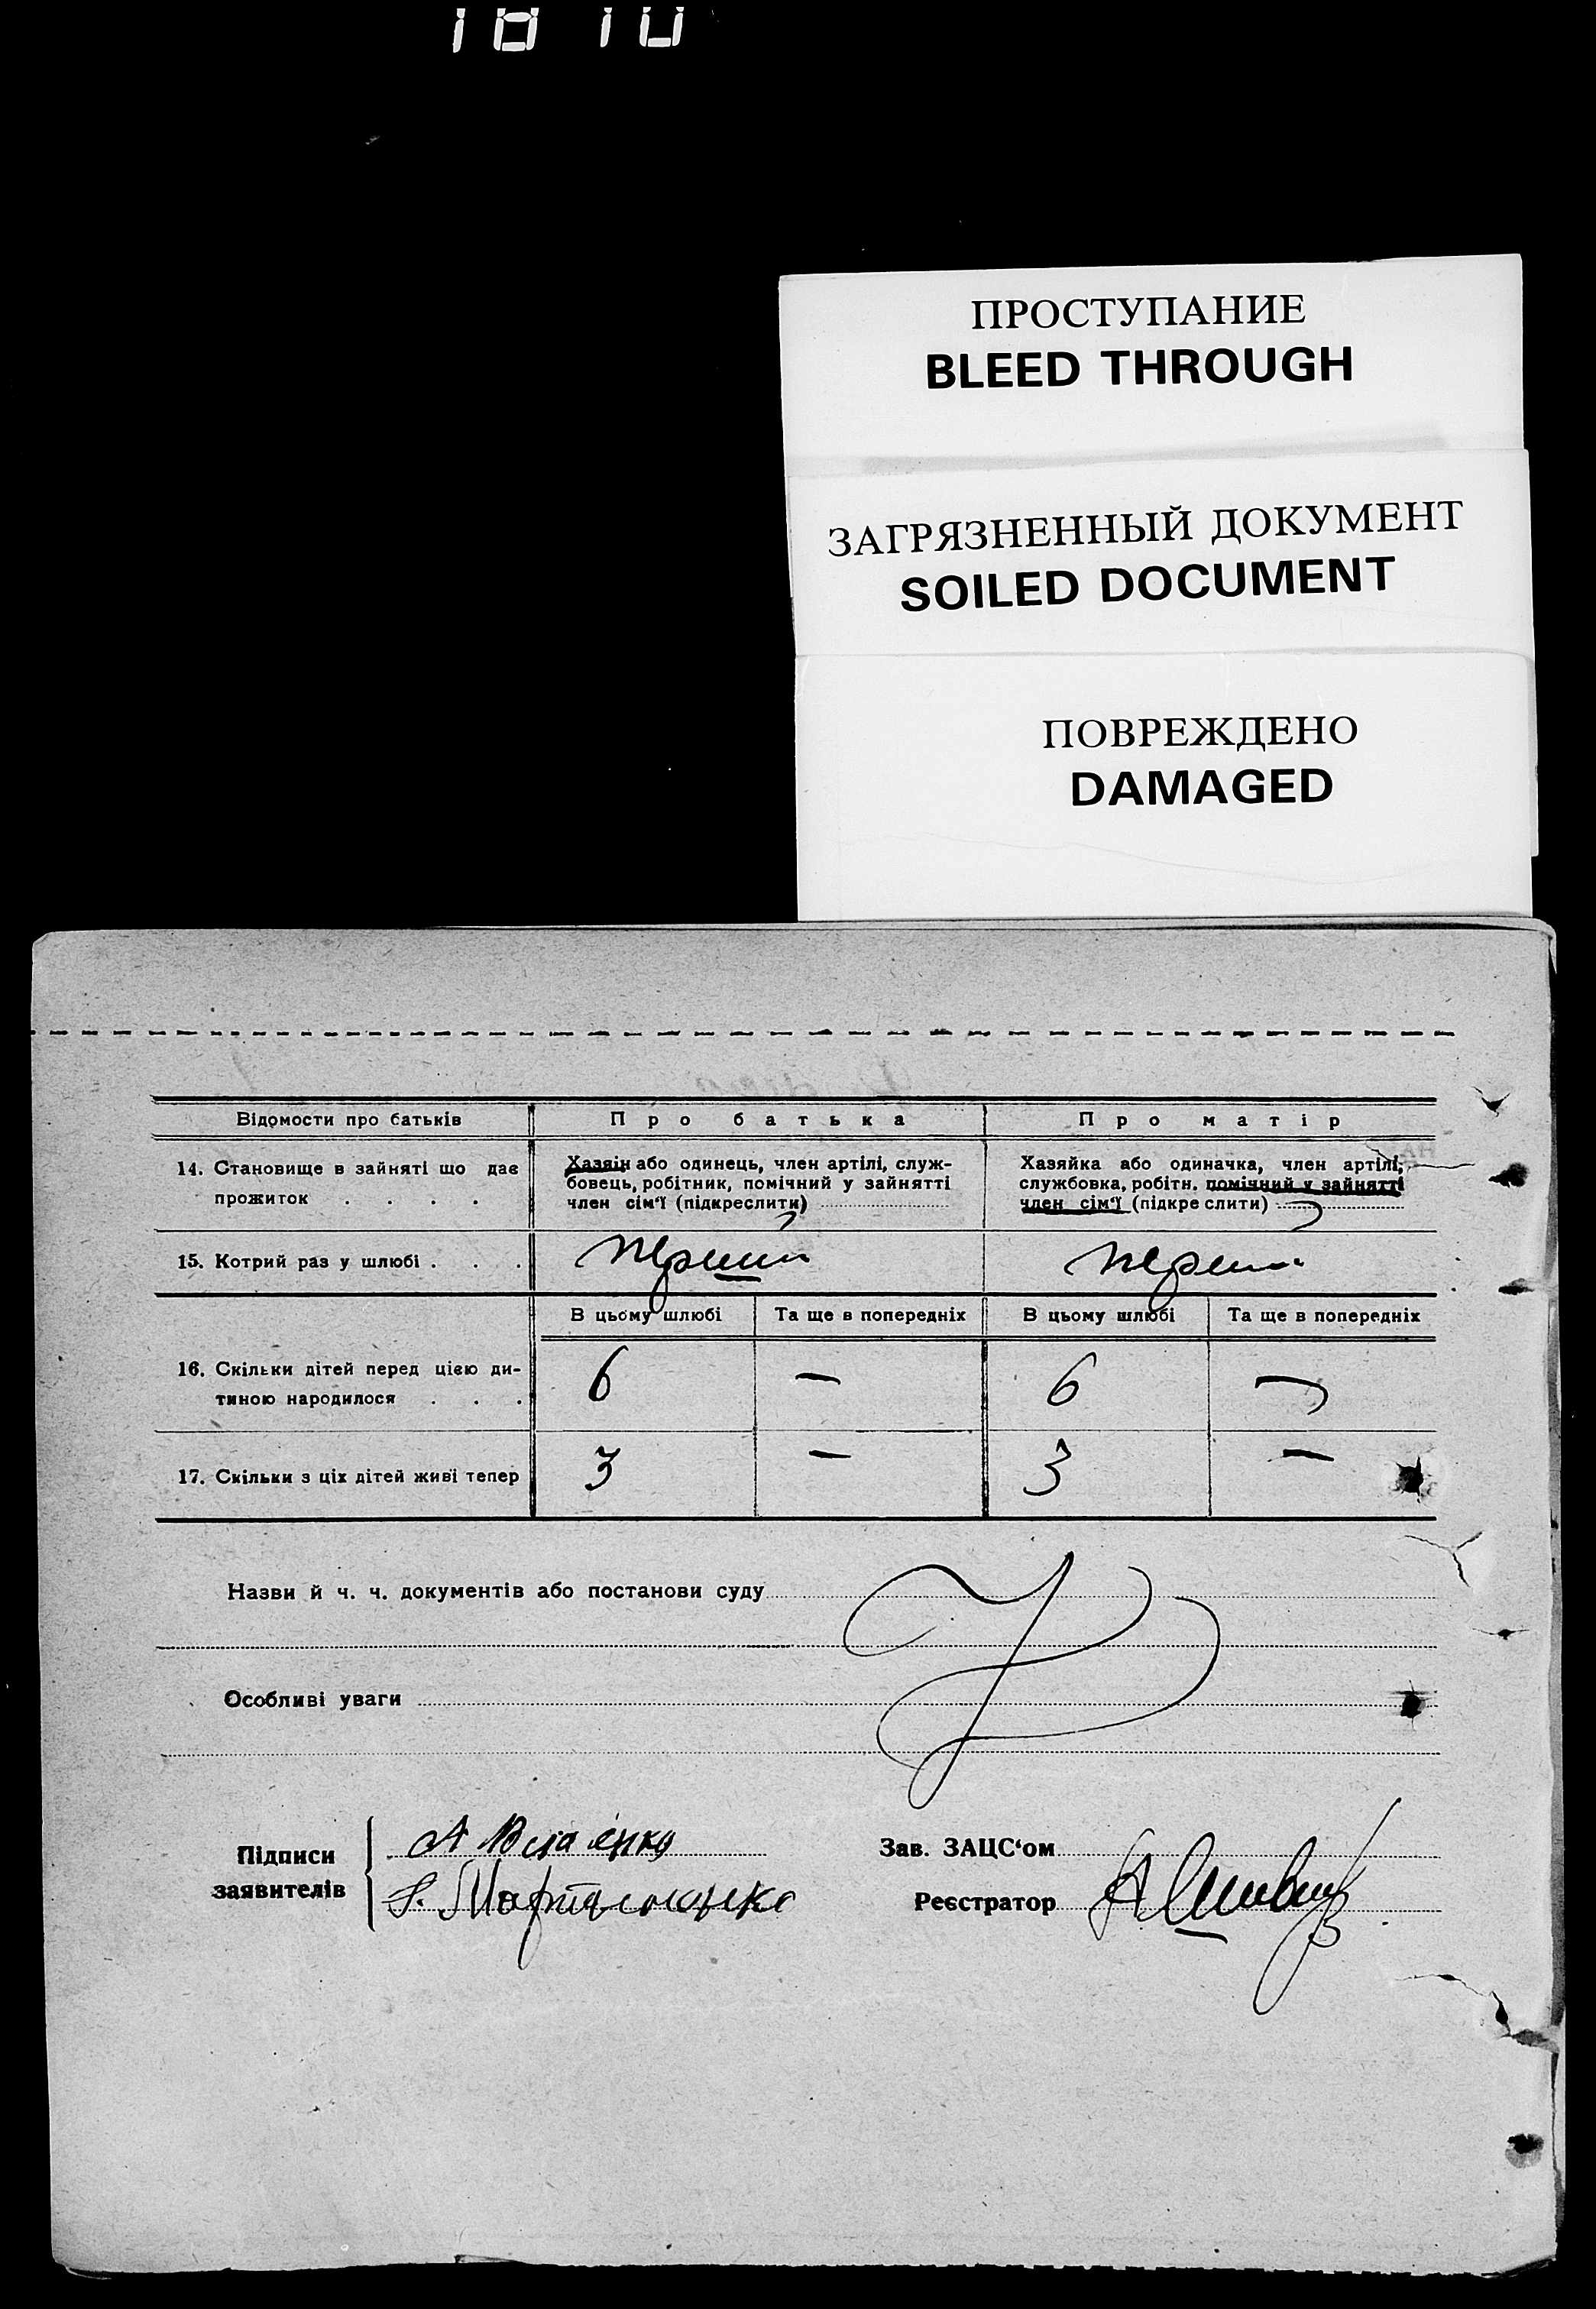 1810
ПРОСТУПАНИЕ
BLEED THROUGH
ЗАГРЯЗНЕННЫЙ ДОКУМЕНТ
SOILED DOCUMENT
ПОВРЕЖДЕНО
DAMAGED
Відомости про батьків Про батька Про матір
14. Становище в зайняті що дає прожиток . . . .
Хазяін або одинець, член артілі, служ-
бовець, робітник, помічний у зайнятті
член сім'ї (підкреслити)
Хазяйка або одиначка, член артілі,
службовка, робітн. помічний у зайнятті
член сім'ї (підкреслити)
15. Котрий раз у шлюбі . . . перший перший
В цьому шлюбі Та ще в попередніх В цьому шлюбі Та ще в попередніх
16. Скільки дітей перед цією ди-
тиною народилося . . . 6 — 6 —
17. Скільки з ціх дітей живі тепер 3 — 3 —
Назви й ч. ч. документів або постанови суду
Особливі уваги
Підписи
заявителів
А
Мартиненко
Зав. ЗАЦС'ом
Реєстратор